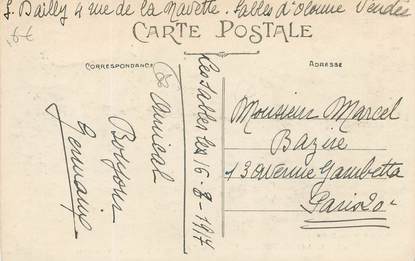 G. Bailly 4 rue de la Navette. Sables d'Olonne Vendée
6€
CARTE POSTALE
CORRESPONDANCE
ADRESSE
Les Sables les 16-8-1917
Amical
Bonjour
Germaine
Monsieur Marcel
Bazire
13 avenue Gambetta
Paris 20e